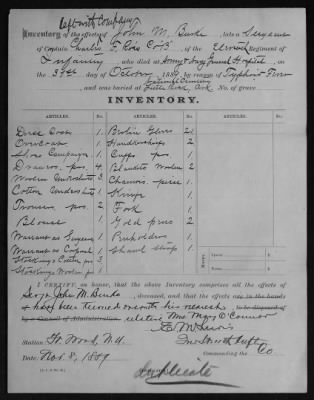 Left with Company
Inventory of the effects of John M. Burke late a Sergeant
of Captain Charles F. Co. of the Eleventh Regiment of
Infantry who died at Army & Navy General Hospital, on
the day of October 1889, by reason of Typhoid Fever
National Cemetery
and was buried at Little Rock, Ark. No. of grave
INVENTORY.
ARTICLES. No. ARTICLES. No.
Dress Coat 1 Berlin Gloves 2
Overcoat 1 Handkerchiefs 2
Shoes Campaign 1 Cuffs prs 1
Drawers, prs 4 Blankets Woolen 2
Woolen Undershirts 3 Chamois piece 1
Cotton Undershirts 1 Knife 1
Trousers prs. 2 Fork 1
Blouse 1
Warrant as Sergeant 1 Penholders 1
Warrant as Corporal 1 Shawl Strap 1
Stockings Cotton pr 3
Stockings Woolen pr 1
I CERTIFY, on honor, that the above Inventory comprises all the effects of
Sergt. John M. Burke, deceased, and that the effects are in the hands
of to be disposed of
by a Council of Administration relative Mrs. Mary O'Connor
Station Ft. Wood, N.Y.
Commanding the Co.
Date: Nov. 8, 1889
Duplicate